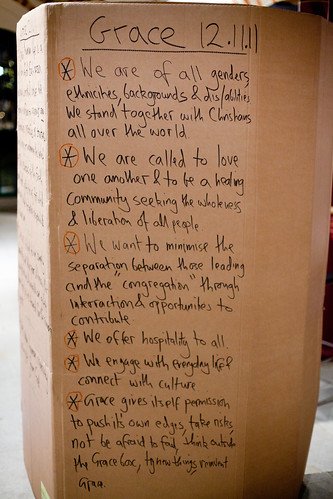 Grace 12.11.11
We are of all genders,
ethnicities, backgrounds & dis/abilities
We stand together with Christians
all over the world
We are called to love
one another & to be a healing
community seeking the wholeness
& liberation of all people
We want to minimise the
separation between those leading
and the "congregation" through
interraction & opportunites to
contribute.
We offer hospitality to all.
We engage with everyday life &
connect with culture
Grace gives itself permission
to push its own edges, take risks,
not be afraid to fail, think outside
the Grace box, try new things, reinvent
Grace.